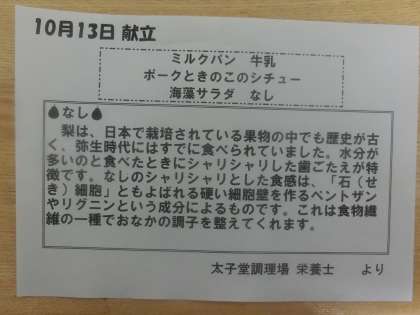 10月13日 献立
ミルクパン 牛乳
ポークときのこのシチュー
海藻サラダ なし
なし
梨は、日本で栽培されている果物の中でも歴史が古
く、弥生時代にはすでに食べられていました。水分が
多いのと食べたときにシャリシャリした歯ごたえが特
徴です。なしのシャリシャリとした食感は、「石（せ
き）細胞」ともよばれる硬い細胞壁を作るペントザン
やリグニンという成分によるものです。これは食物繊
維の一種でおなかの調子を整えてくれます。
太子堂調理場 栄養士 より